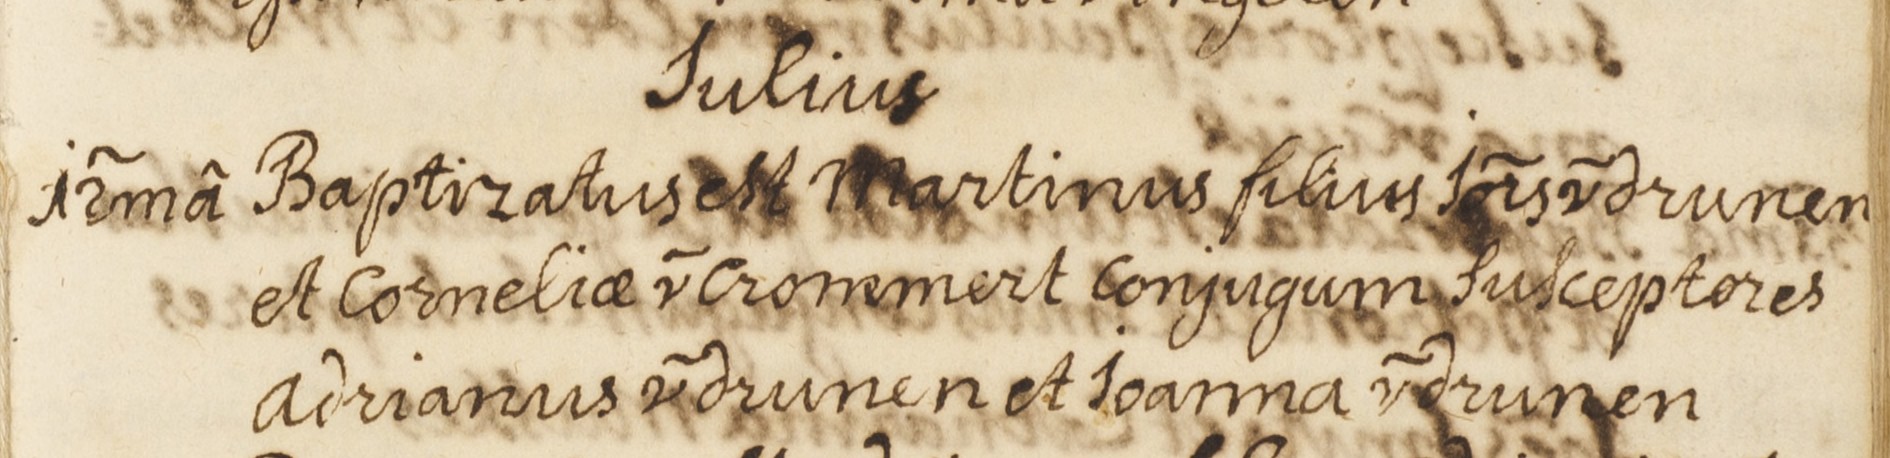 Julius
12mâ Baptizatus est Martinus filius Jõis ṽ drunen
et Corneliæ ṽ Crommert conjugum Susceptores
Adrianus ṽ drunen et Joanna ṽ drunen